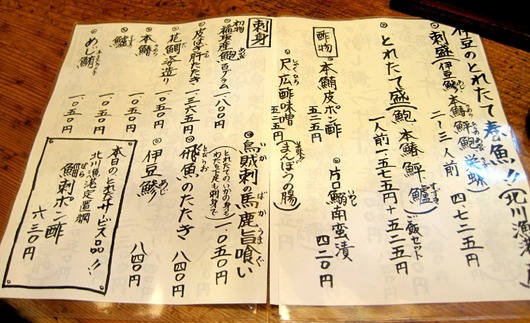 伊豆のとれたて春魚!!北川漁港
◎刺盛(伊豆鯵 本鯵 鮮 鮑 栄螺)
二〜三人前 四七二五円
◎とれたて盛(鮑 本鯵 鮮 鱸)ご飯セット
一人前一五七五円+五二五円
酢物
◎本鮪皮ポン酢
五二五円
◎片口鰯南蛮漬
四二〇円
◎尺広酢味噌(まんぼうの腸)
五二五円
刺身
初物
福島産鰹 一八〇〇円
◎皮はぎ肝たたき 一三六五円
◎花鯛姿造り 一〇五〇円
◎本鯵 一〇五〇円
◎鱸 一〇五〇円
◎めじ鮪 一〇五〇円
◎烏賊刺の馬鹿旨喰い
いか ばか うまぐ
(とれたてのいかの身を
わた 七尾も刺身で)
一〇五〇円
◎飛魚のたたき
とびうお
八四〇円
◎伊豆鯵
あじ
八四〇円
本日のこれぞサービス品!!
北川漁港定置網
鰯刺ポン酢
六三〇円